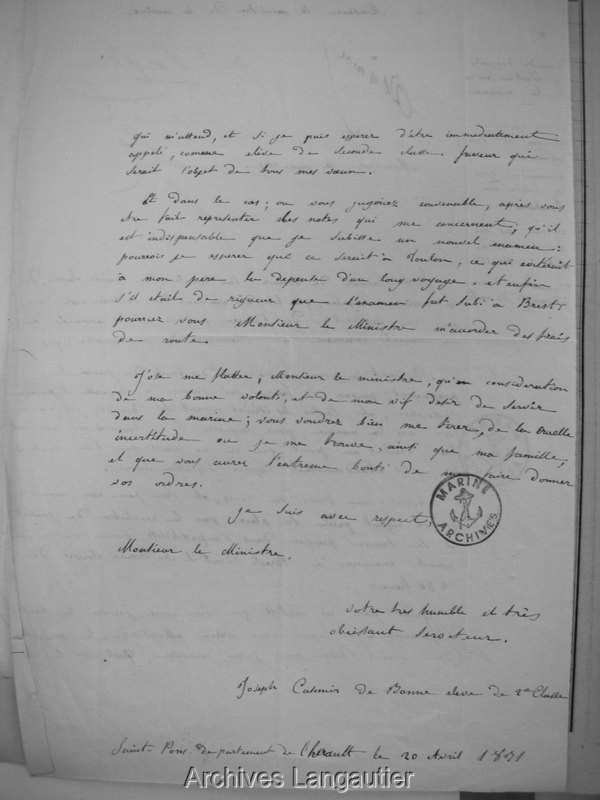 qui m'attend, et si je puis esperer d'être immediatement
appelé, comme elève de seconde classe. faveur qui
serait l'objet de tous mes vœux.
Et dans le cas; ou vous jugériez convenable, après vous
etre fait representer les notes qui me concernent, qu'il
est indispensable que je subisse un nouvel examen:
pourrois je esperer que ce serait a Toulon, ce qui eviterait
à mon pere la depense d'un long voyage. et enfin
s'il etait de rigueur que l'examen fut subi à Brest:
pourriez vous Monsieur le Ministre m'accorder des frais
de route.
J'ose me flatter, Monsieur le ministre, qu'en consideration
de ma bonne volonté, et de mon vif desir de servir
dans la marine; vous voudrez bien me tirer, de la cruelle
incertitude ou je me trouve, ainsi que ma famille,
et que vous aurez l'extreme bonté de me faire donner
vos ordres.
Je suis avec respect,
Monsieur le Ministre,
votre tres humble et très
obéissant serviteur.
Joseph Casimir de Bonne eleve de 2e Classe
Saint-Pons. departement de l'herault le 20 Avril 1831
MARINE
ARCHIVES
Archives Langautier